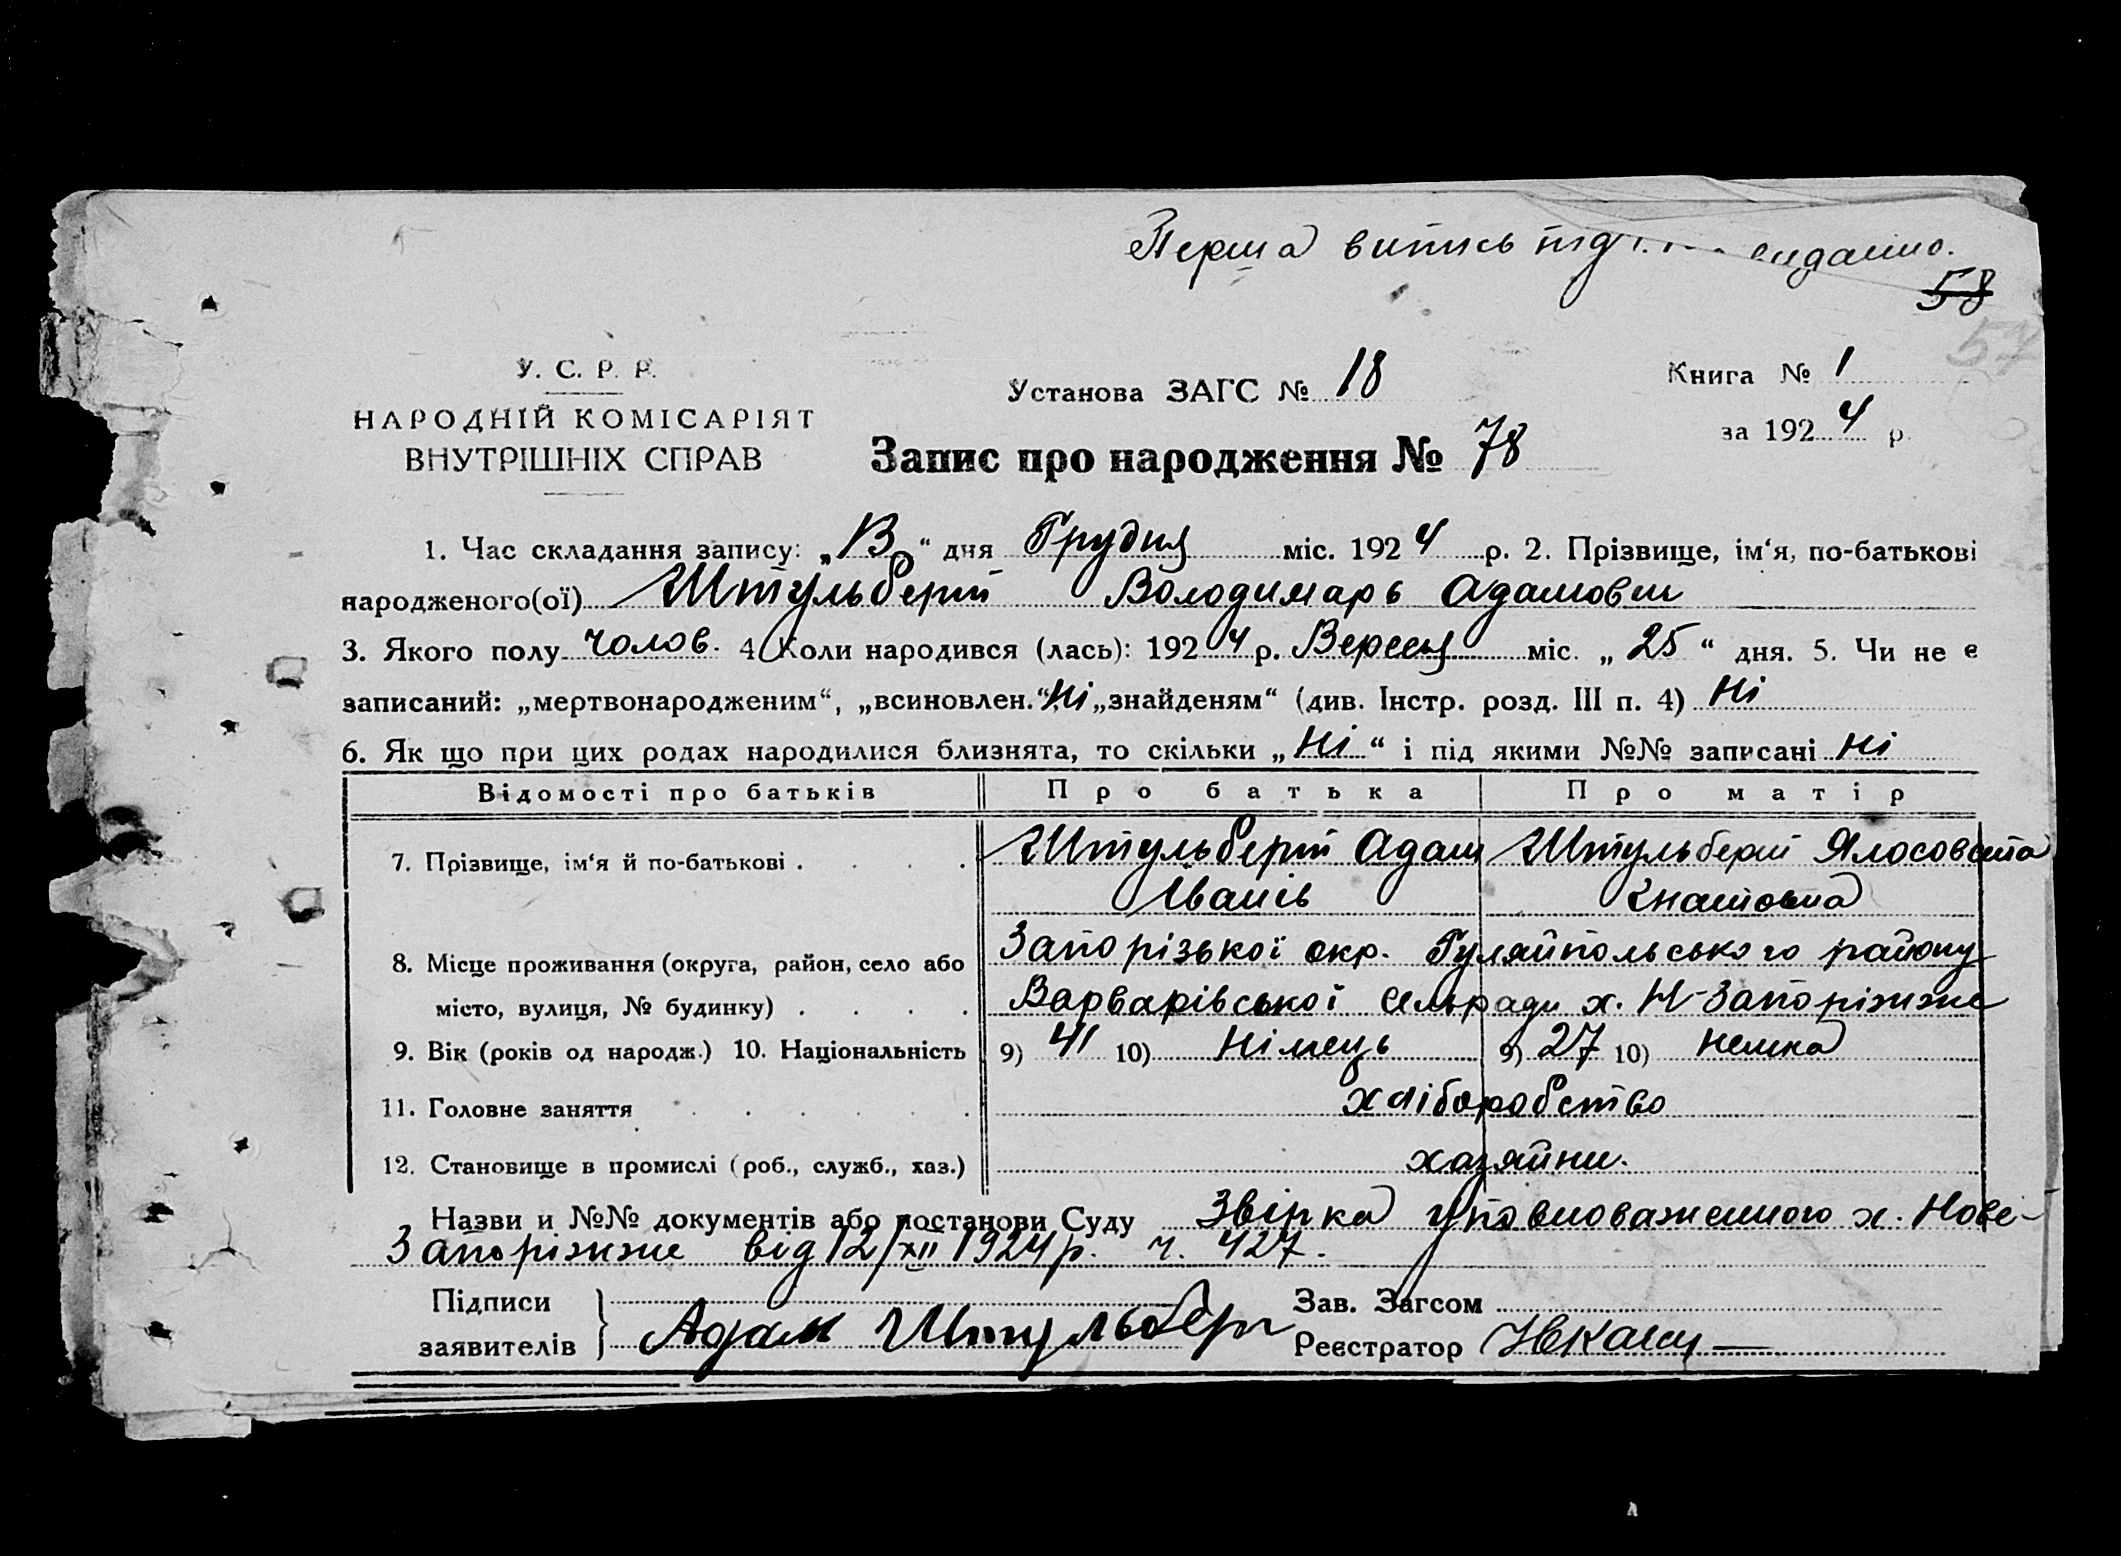 Перша випись під видано.
58
57
У. С. Р. Р.
Установа ЗАГС № 18
Книга № 1
НАРОДНІЙ КОМІСАРІЯТ
ВНУТРІШНІХ СПРАВ
за 1924 р.
Запис про народження № 78
1. Час складання запису: „13“ дня Грудня міс. 1924 р. 2. Прізвище, ім‘я, по-батькові
народженого(ої) Штульберґ Володимарь Адамовш
3. Якого полу чолов. 4 Коли народився (лась): 1924 р. Вересня міс. „25“ дня. 5. Чи не є
записаний: „мертвонародженим“, „всиновлен.“, Ні „знайденям“ (див. Інстр. розд. III п. 4) Ні
6. Як що при цих родах народилися близнята, то скільки „Ні“ і під якими №№ записані Ні
Відомості про батьків Про батька Про матір
7. Прізвище, ім‘я й по-батькові . . . . Штульберґ Адам Штульберґ
Іванів
8. Місце проживання (округа, район, село або Запорізької окр. Гуляйпольського району
місто, вулиця, № будинку) . . . . Варварівської сельради х. Н-Запоріжже
9. Вік (років од народж.) 10. Національність 9) 41 10) Німець 9) 27 10) Немка
11. Головне заняття . . . . . . хліборобство
12. Становище в промислі (роб., служб., хаз.) хазяйни.
Назви и №№ документів або постанови Суду Звірка уповноваженного х. Нове-
Запоріжже від 12/XII 1924 р. ч. 427.
Підписи
заявителів } Адам Штульберг
Зав. Загсом
Реєстратор